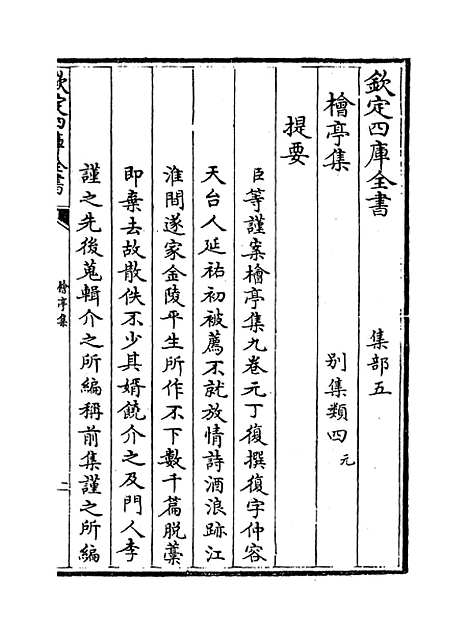 欽定四庫全書　集部五
檜亭集　别集類四元
提要
臣等謹案檜亭集九卷元丁復撰復字仲容
天台人延祐初被薦不就放情詩酒浪跡江
淮間遂家金陵平生所作不下數千篇脱藁
即棄去故散佚不少其婿饒介之及門人李
謹之先後蒐輯介之所編稱前集謹之所編
欽定四庫全書
檜亭集